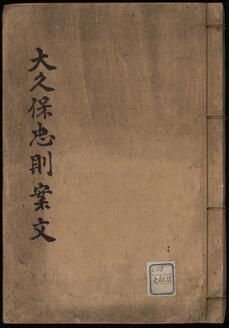 大久保忠則案文